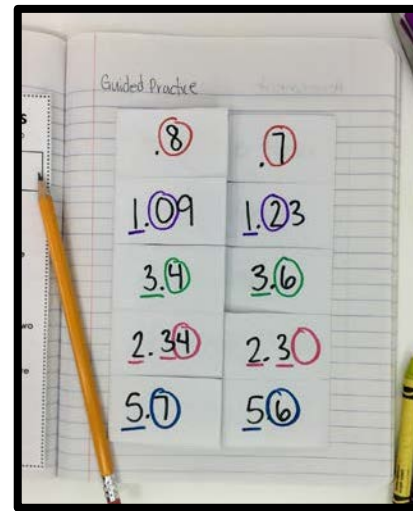 Guided Practice
.8 .7
1.09 1.23
3.4 3.6
2.34 2.3
5.7 56